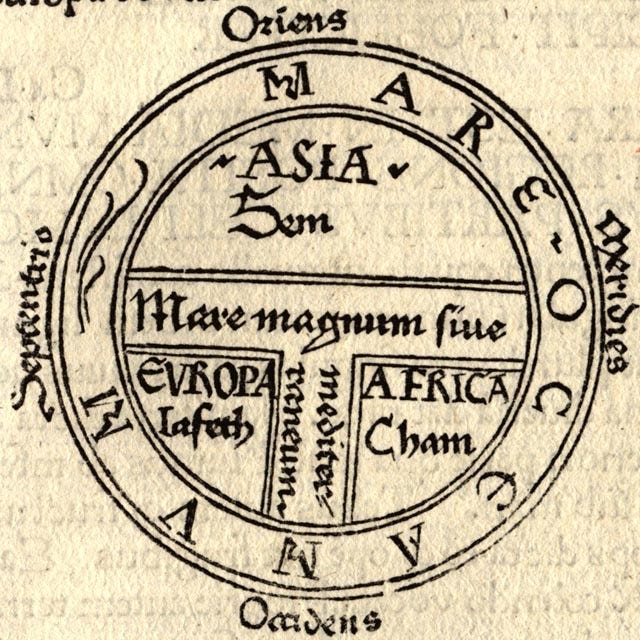 Oriens
MARE OCEANVM
ASIA
Sem
Septentrio
Meridies
Mare magnum ſiue
mediter/
raneum.
EVROPA
Iafeth
AFRICA
Cham
Occidens